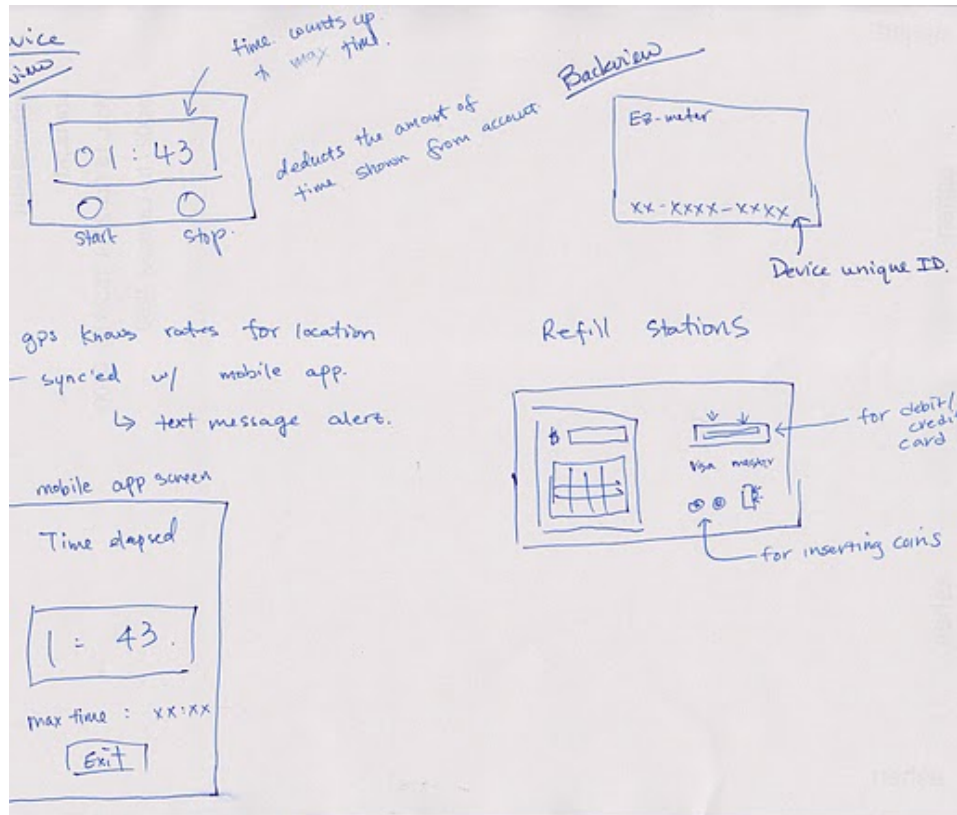 vice
view
time counts up
to max time.
01:43
start stop.
deducts the amount of
time shown from account
Backview
EZ-meter
xx-xxxx-xxxx
Device unique ID.
gps knows rates for location
- sync'ed w/ mobile app.
↳ text message alert.
Refill Stations
$
visa master
for debit/
credit
card
for inserting coins
mobile app screen
Time elapsed
1:43.
max time : xx:xx
Exit